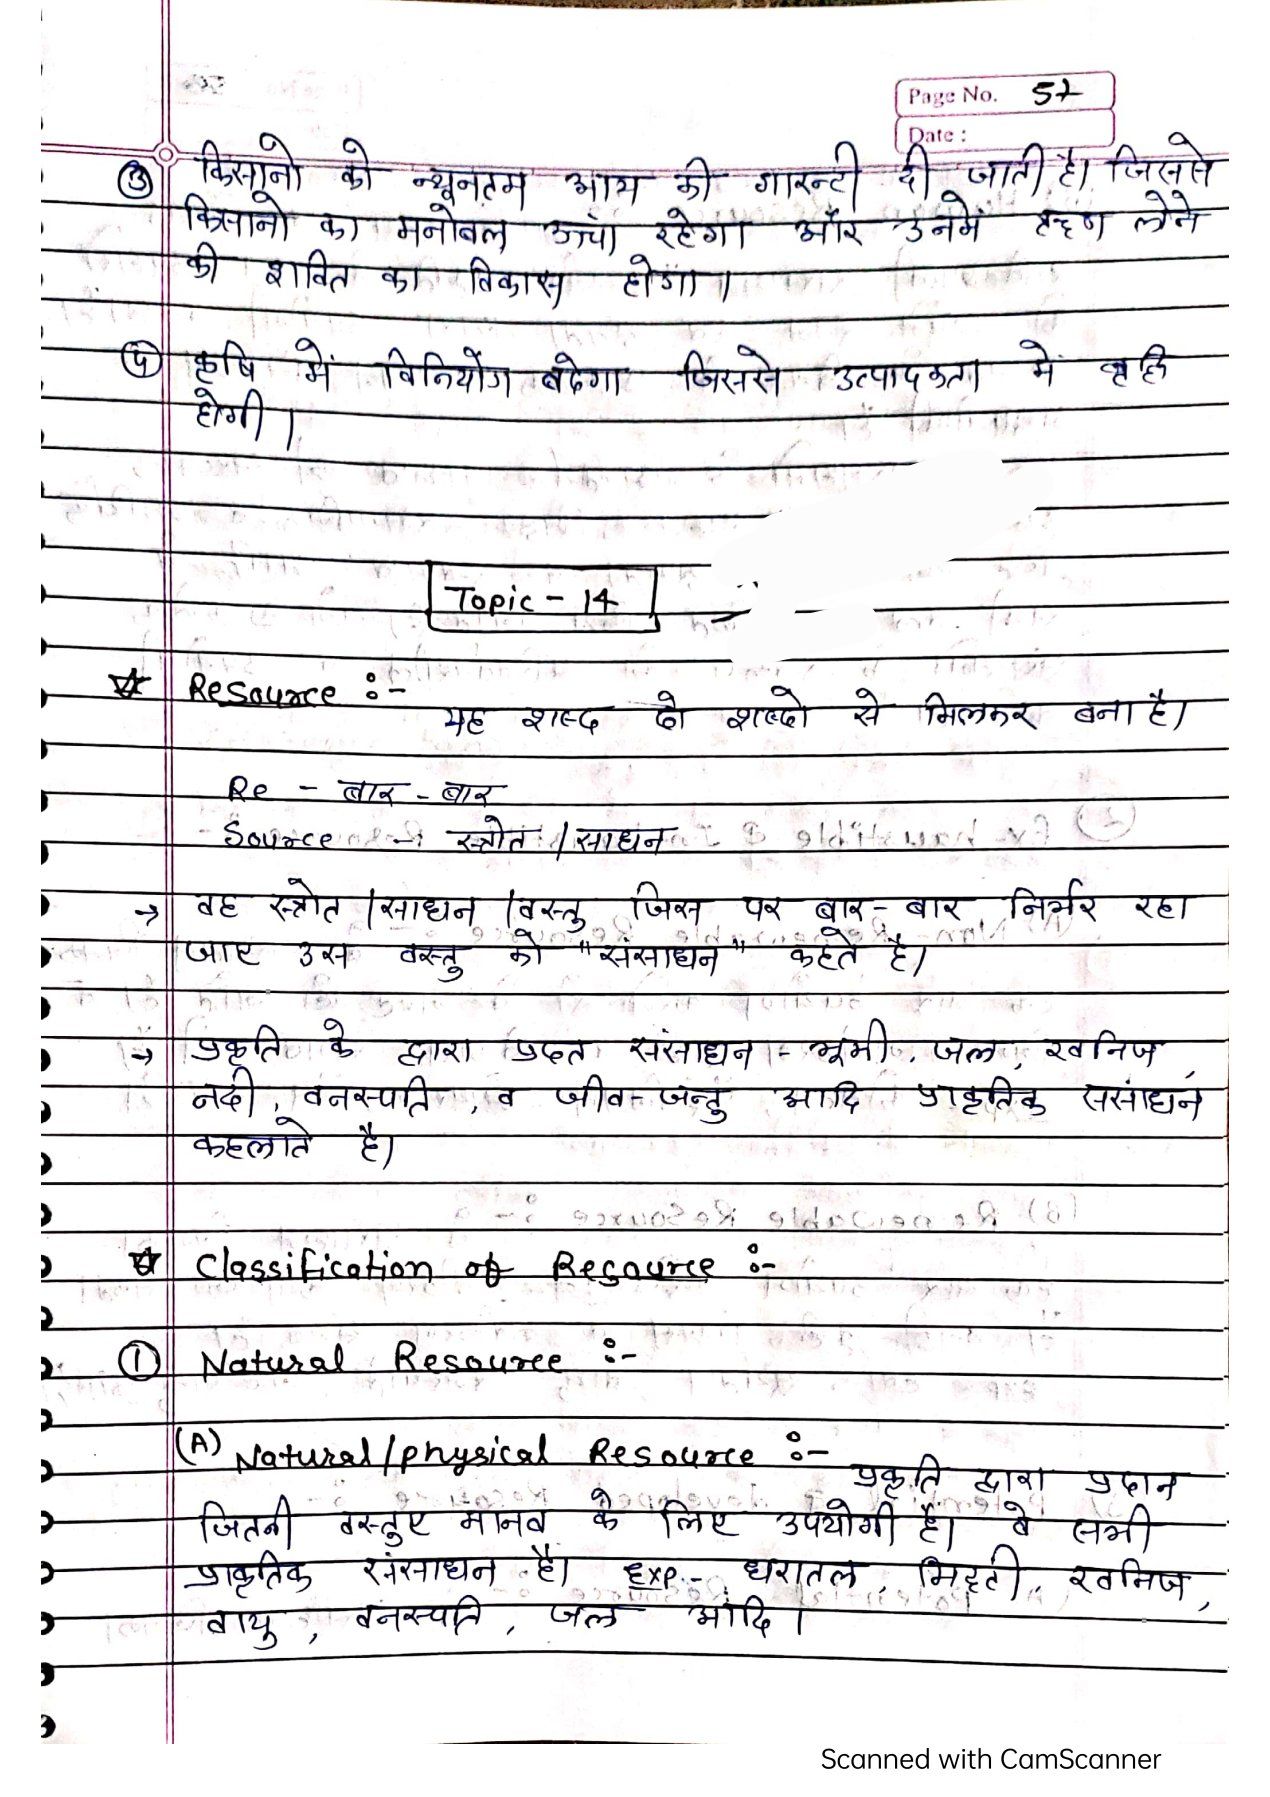 Page No. 57
Date :
③ किसानो को न्यूनतम आय की गारन्टी दी जाती है। जिससे
किसानो का मनोबल ऊचाँ रहेगा और उनमें ऋण लेने
की शक्ति का विकास होगा।
④ कृषि में विनियोग बढेगा जिससे उत्पादकता में वृद्धि
होगी।
Topic - 14
☆ Resource :-
यह शब्द दो शब्दो से मिलकर बना है।
Re - बार - बार
Source - स्त्रोत / साधन
→ वह स्त्रोत / साधन / वस्तु जिस पर बार - बार निर्भर रहा
जाए उस वस्तु को "संसाधन" कहते है।
→ प्रकृति के द्वारा प्रदत संसाधन - भूमी, जल, खनिज,
नदी, वनस्पति, व जीव-जन्तु आदि प्राकृतिक ससांधन
कहलाते है।
☆ Classification of Resource :-
① Natural Resource :-
(A) Natural/physical Resource :-
प्रकृति द्वारा प्रदान
जितनी वस्तुए मानव के लिए उपयोगी है। वे सभी
प्राकृतिक संसाधन है। Exp.- धरातल, मिट्टी, खनिज,
वायु, वनस्पति, जल आदि।
Scanned with CamScanner